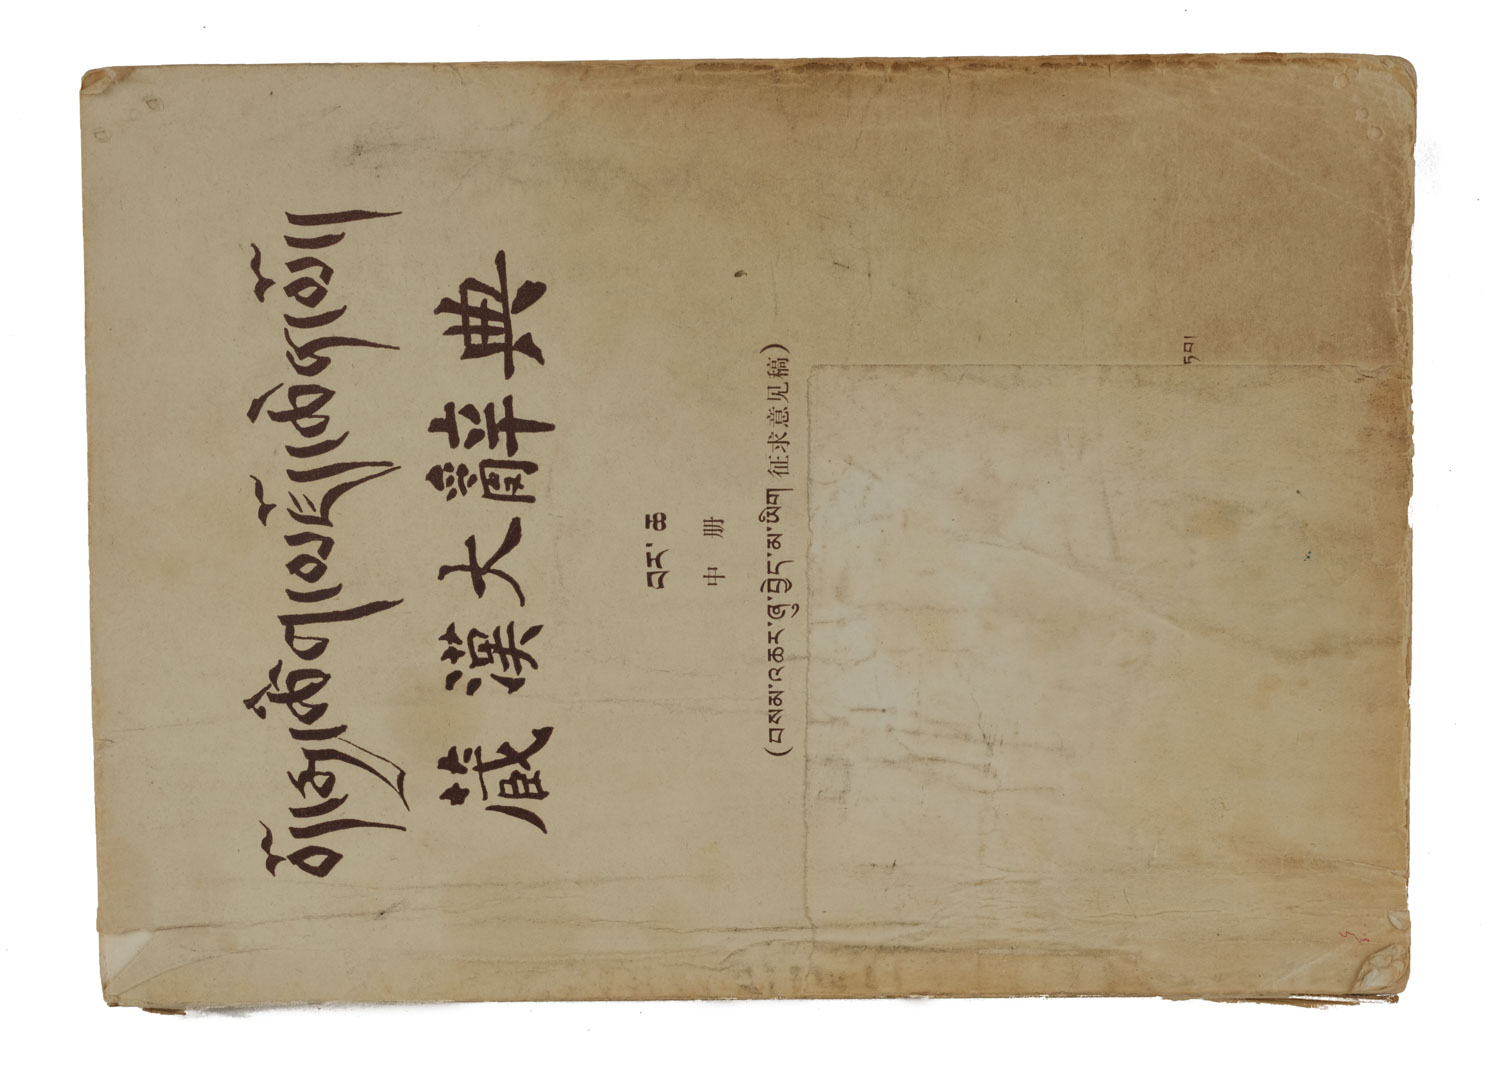 བོད་རྒྱ་ཚིག་མཛོད་ཆེན་མོ།
藏漢大辭典
བར་ཆ
中册
(བསམ་འཆར་ཞུ་བྱེད་མ་ཡིག 征求意见稿)